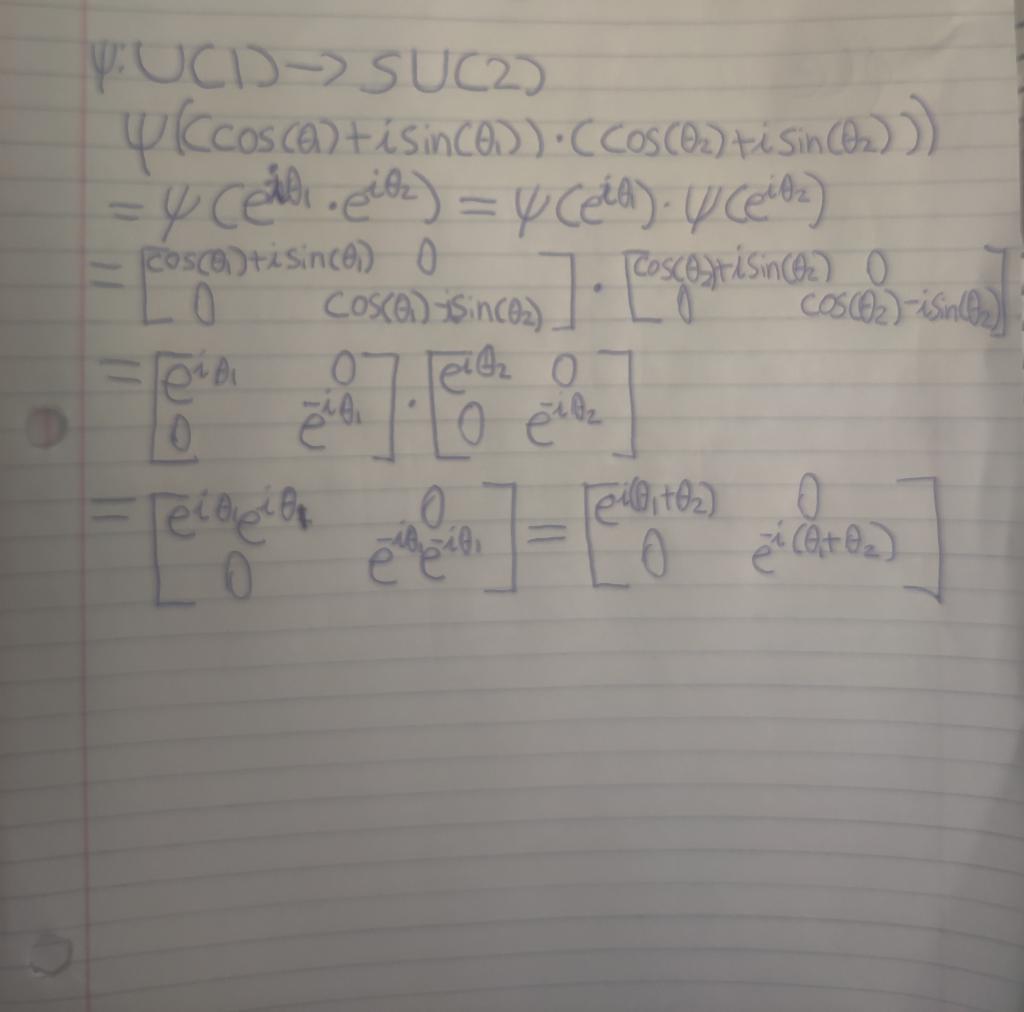 ψ: U(1) → SU(2)
ψ((cos(θ₁)+isin(θ₁))·(cos(θ₂)+isin(θ₂)))
= ψ(e^{iθ₁}·e^{iθ₂}) = ψ(e^{iθ₁})·ψ(e^{iθ₂})
= [cos(θ₁)+isin(θ₁) 0] · [cos(θ₂)+isin(θ₂) 0]
[0 cos(θ₁)-isin(θ₂)] [0 cos(θ₂)-isin(θ₂)]
= [e^{iθ₁} 0] · [e^{iθ₂} 0]
[0 e^{-iθ₁}] [0 e^{-iθ₂}]
= [e^{iθ₁}e^{iθ₁} 0] = [e^{i(θ₁+θ₂)} 0]
[0 e^{-iθ₁}e^{-iθ₁}] [0 e^{-i(θ₁+θ₂)}]